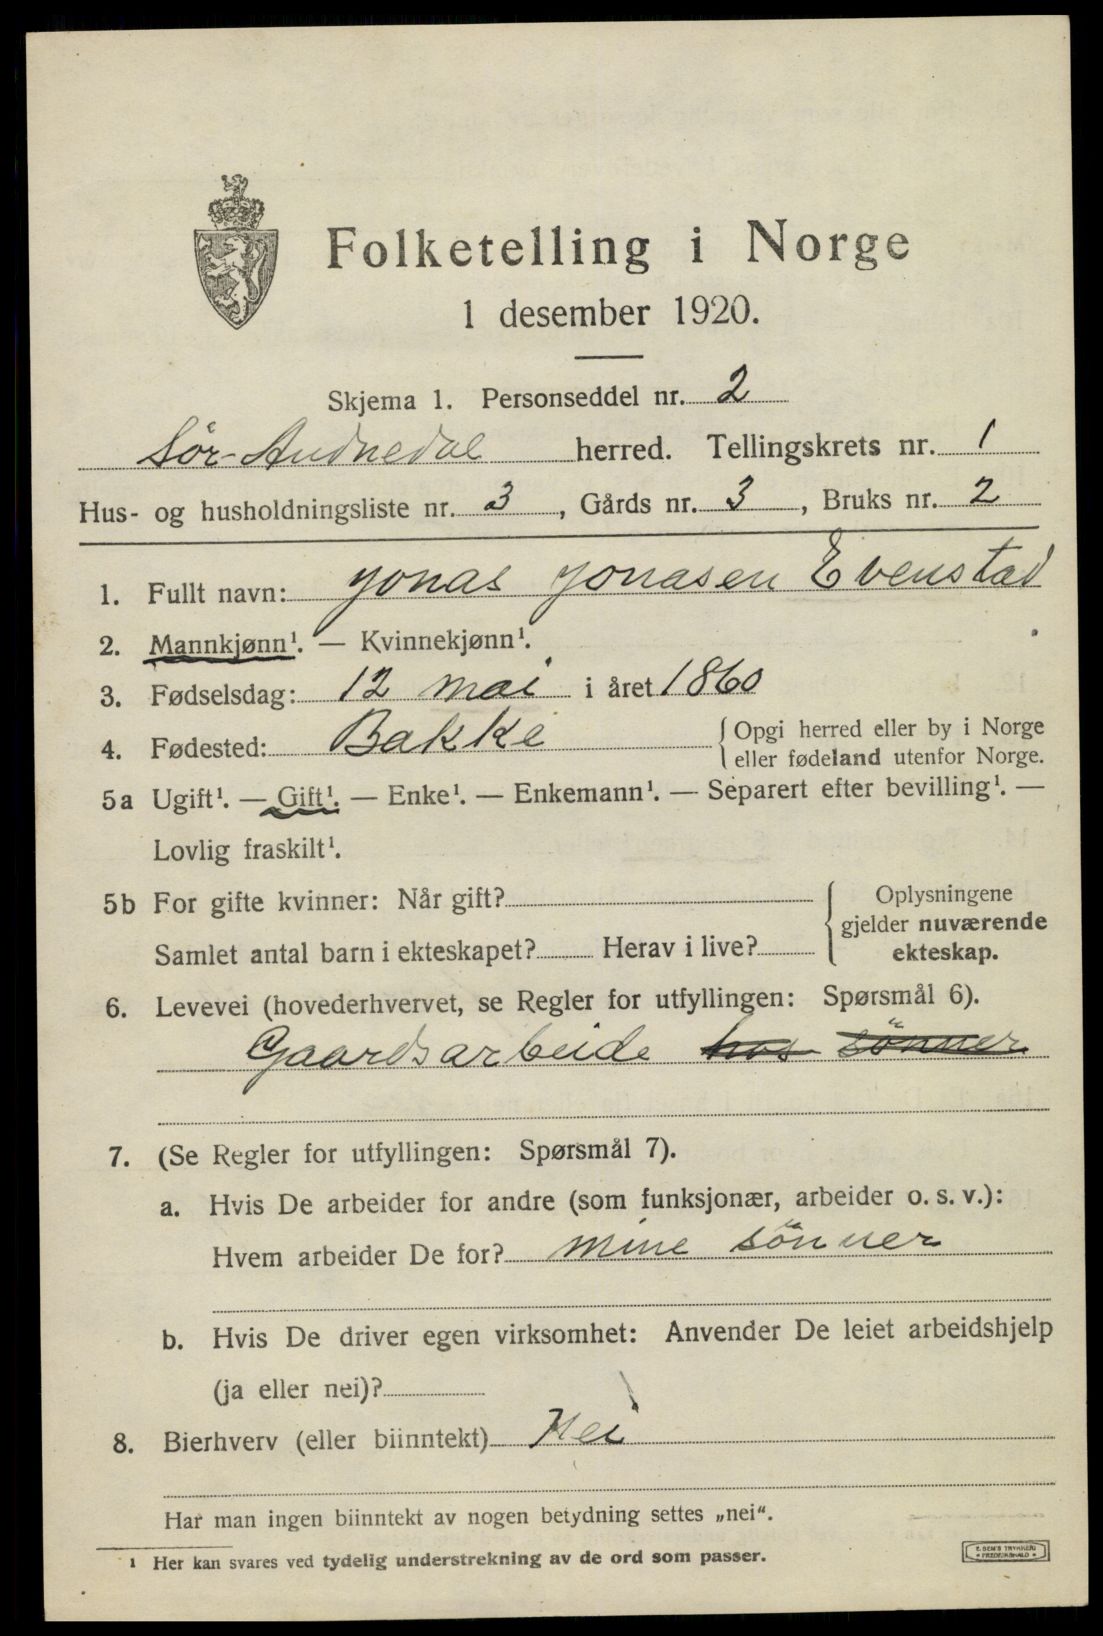 Folketelling i Norge
1 desember 1920.
Skjema 1. Personseddel nr. 2
Sör-Audnedal herred. Tellingskrets nr. 1
Hus- og husholdningsliste nr. 3, Gårds nr. 3, Bruks nr. 2
1. Fullt navn: Jonas Jonasen Evenstad
2. Mannkjønn¹. — Kvinnekjønn¹.
3. Fødselsdag: 12 mai i året 1860
4. Fødested: Bakke { Opgi herred eller by i Norge
eller fødeland utenfor Norge.
5a Ugift¹. — Gift¹. — Enke¹. — Enkemann¹. — Separert efter bevilling¹. —
Lovlig fraskilt¹.
5b For gifte kvinner: Når gift? { Oplysningene
gjelder nuværende
Samlet antal barn i ekteskapet? Herav i live? ekteskap.
6. Levevei (hovederhvervet, se Regler for utfyllingen: Spørsmål 6).
Gaardsarbeide hos sönner
7. (Se Regler for utfyllingen: Spørsmål 7).
a. Hvis De arbeider for andre (som funksjonær, arbeider o. s. v.):
Hvem arbeider De for? mine sönner
b. Hvis De driver egen virksomhet: Anvender De leiet arbeidshjelp
(ja eller nei)?
8. Bierhverv (eller biinntekt) Nei
Har man ingen biinntekt av nogen betydning settes „nei“.
¹ Her kan svares ved tydelig understrekning av de ord som passer.
E. SEM'S TRYKKERI
• FREDRIKSHALD •